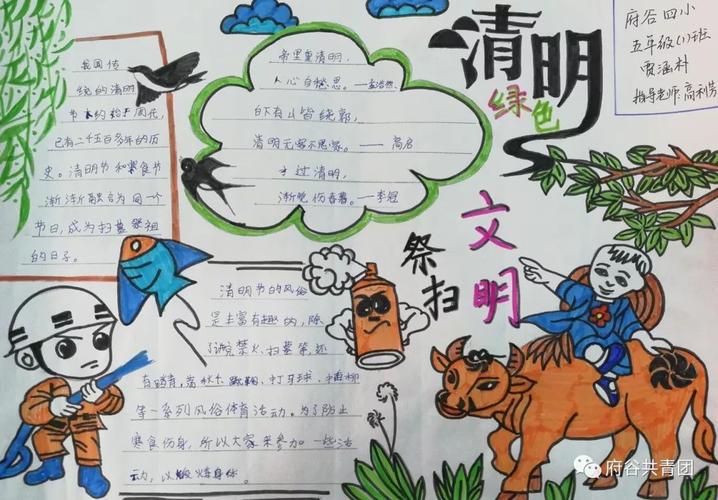 清明
绿色
文明
祭扫
府谷四小
五年级(1)班
贾涵朴
指导老师:高利芳
我国传
统的清明
节大约始于周代,
已有二千五百多年的历
史。清明节和寒食节
渐渐融合为同一个
节日,成为扫墓祭祖
的日子。
帝里重清明,
人心自愁思。——孟浩然
白下有山皆绕郭,
清明无客不思家。——高启
才过清明,
渐觉伤春暮。——李冠
清明节的风俗
是丰富有趣的,除
了讲究禁火、扫墓等还
有踏青,荡秋千、蹴鞠、打马球、插柳
等一系列风俗体育活动。为了防止
寒食伤身,所以大家来参加一些活
动,以锻炼身体
府谷共青团